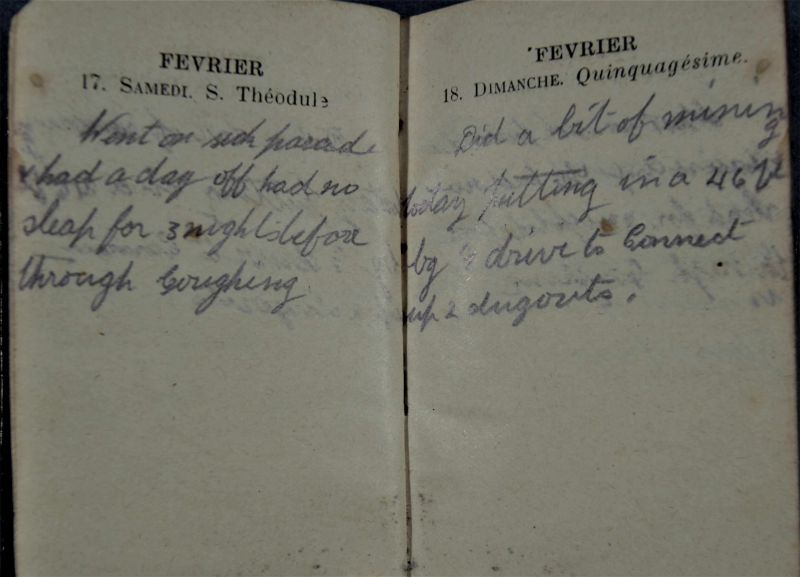 FEVRIER
17. SAMEDI. S. Théodule
Went on sick parade
& had a day off had no
sleap for 3 nights before
through Coughing
FEVRIER
18. DIMANCHE. Quinquagésime.
Did a bit of mining
today putting in a 4'6"
by drive to Connect
up 2 dugouts.